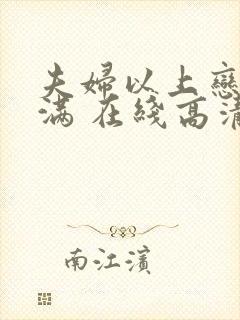 夫婦以上戀
满 在綫高清
南江濱